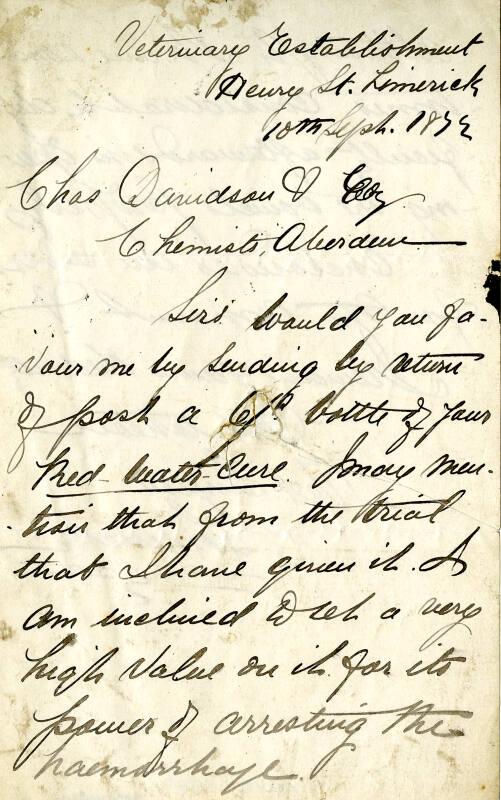 Veterinary Establishment
Henry St. Limerick
10th Sept. 1872
Chas Davidson & Coy
Chemists, Aberdeen
Sirs would you fa-
vour me by sending by return
of post a bottle of your
Red-water-Cure. I may men-
-tion that from the trial
that I have given it. I
am inclined to set a very
high value on it for its
power of arresting the
haemorrhage.